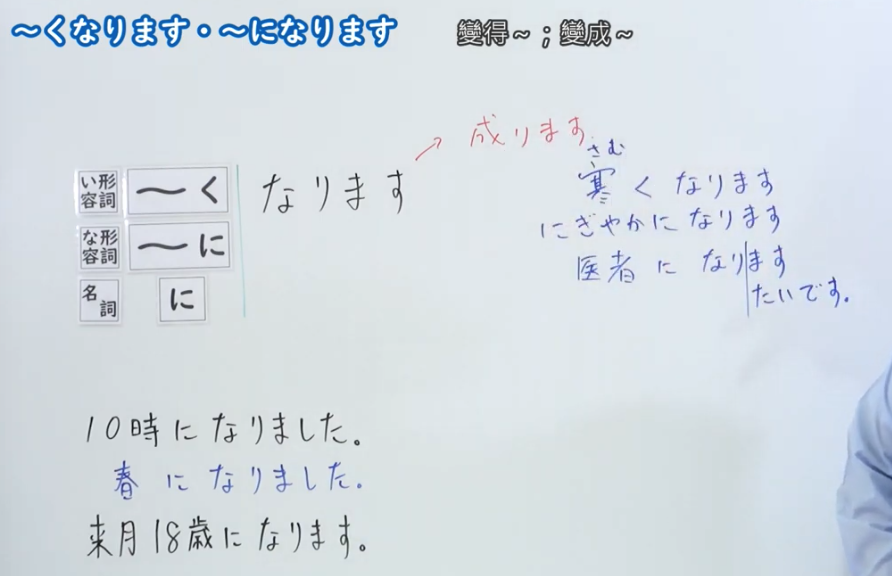 ～くなります・～になります
變得～；變成～
い形容詞 ～く なります
な形容詞 ～に
名詞 に
成ります
さむ
寒くなります
にぎやかになります
医者になります
たいです。
10時になりました。
春になりました.
来月18歳になります。